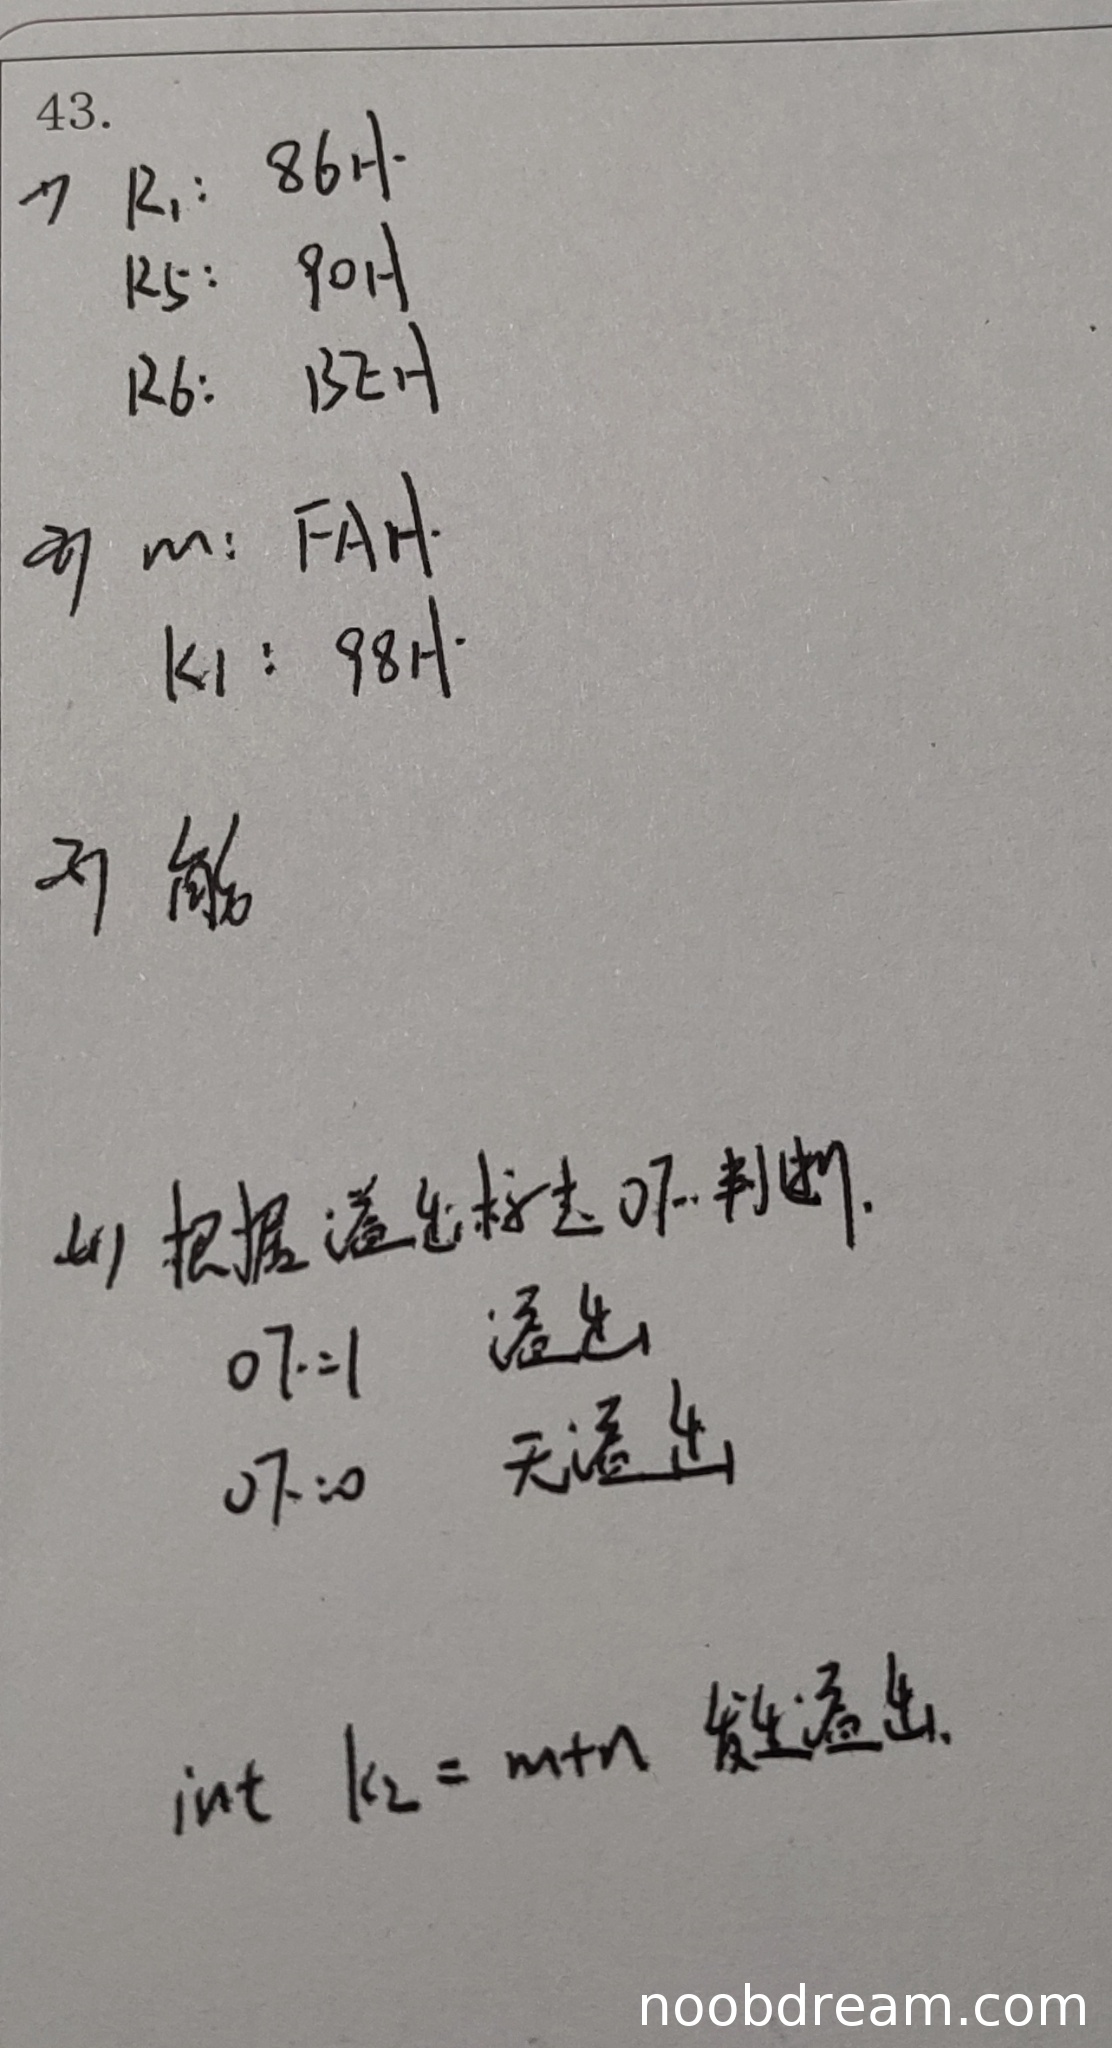 43.
1) R1: 86H.
R5: 90H
R6: BEH
2) m: FAH.
K1: 98H.
3) 能
4) 根据溢出标志OF.判断.
OF.=1 溢出
OF.=0 无溢出
int k2 = m+n 发生溢出.
noobdream.com